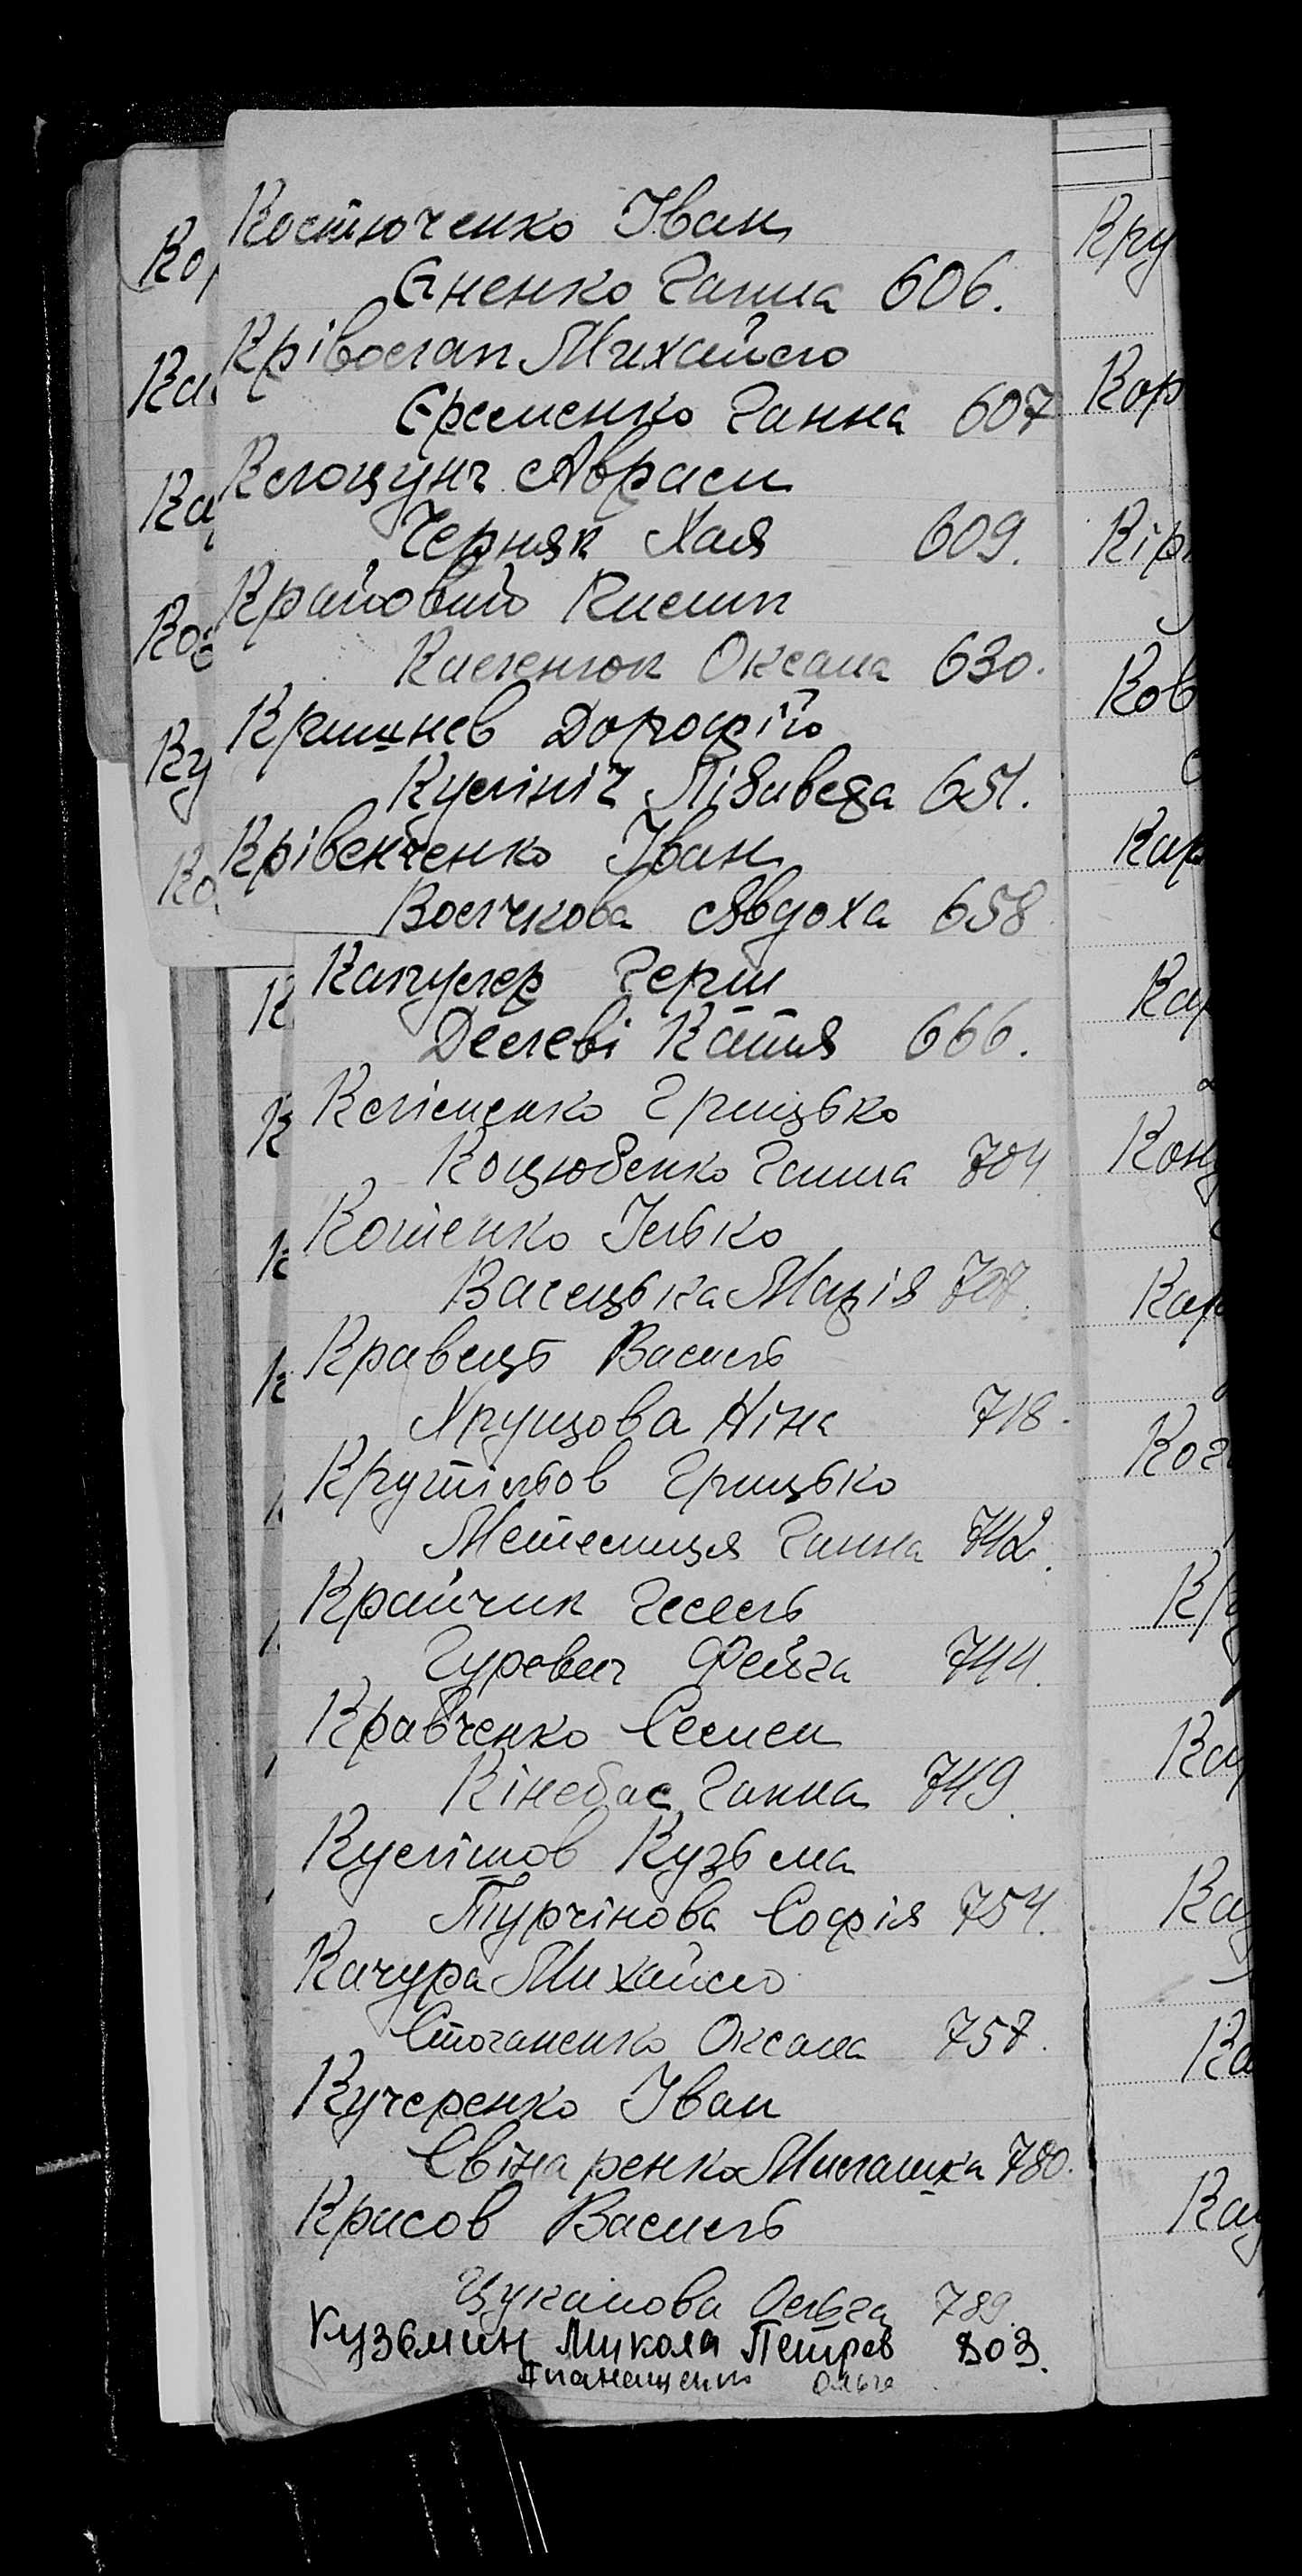 Костюченко Іван
Єненко Ганна 606.
Крівошап Михайло
Єременко Ганна 607
Клоцунг Абрам
Черняк Хая 609.
Крайовий Кислип
Каленюк Оксана 630.
Кришнев Дорофій
Кулініч Лізаведа 651.
Крівенченко Іван
Волчкова Явдоха 658
Капулер Герш
Делеві Катя 666.
Кліменко Грицько
Коцюбенко Ганна 704
Котенко Ілько
Васецька Марія 707.
Кравець Василь
Хрущова Ніна 718.
Крутільов Грицько
Метелиця Ганна 742.
Крайчик Гесель
Гуревич Фейга 744.
Кравченко Семен
Кінебас Ганна 749.
Кулішов Кузьма
Турчінова Софія 754.
Качура Михайло
Стоганенко Оксана 757.
Кучеренко Іван
Свінаренко Милашка 780.
Красов Василь
Цуканова Ольга 789.
Кузьмин Микола Петров 803.
Ольга
Кру
Кор
Ков
Кар